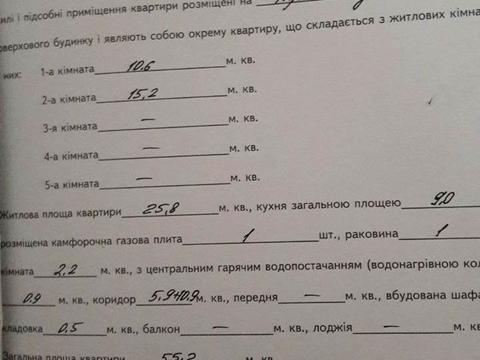 илі і підсобні приміщення квартири розміщені на
оверхового будинку і являють собою окрему квартиру, що складається з житлових кімна
них: 1-а кімната 10,6 м. кв.
2-а кімната 15,2 м. кв.
3-я кімната — м. кв.
4-а кімната — м. кв.
5-а кімната — м. кв.
Житлова площа квартири 25,8 м. кв., кухня загальною площею 9,0
розміщена камфорочна газова плита 1 шт., раковина 1
кімната 2,2 м. кв., з центральним гарячим водопостачанням (водонагрівною кол
0,9 м. кв., коридор 5,9+0,9 м. кв., передня — м. кв., вбудована шафа
кладовка 0,5 м. кв., балкон — м. кв., лоджія — м. кв.
Загальна площа квартири 55,2 м. кв.